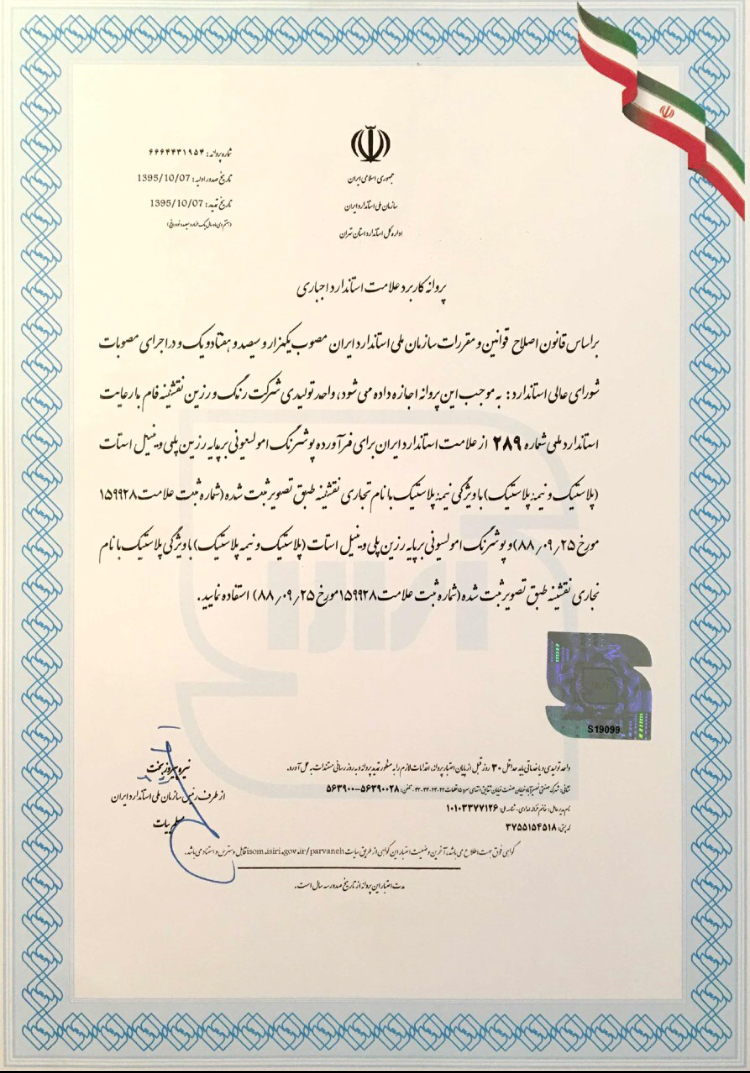 جمهوری اسلامی ایران
سازمان ملی استاندارد ایران
اداره کل استاندارد استان تهران
شماره پروانه: ۶۶۶۴۴۳۱۹۵۴
تاریخ صدور اولیه: 1395/10/07
تاریخ تمدید: 1395/10/07
پروانه کاربرد علامت استاندارد اجباری
براساس قانون اصلاح قوانین و مقررات سازمان ملی استاندارد ایران مصوب یکهزار و سیصد و هفتاد و یک و در اجرای مصوبات
شورای عالی استاندارد: به موجب این پروانه اجازه داده می شود، واحد تولیدی شرکت رنگ و رزین نقشینه فام با رعایت
استاندارد ملی شماره ۲۸۹ از علامت استاندارد ایران برای فرآورده پوشرنگ امولسیونی بر پایه رزین پلی وینیل استات
(پلاستیک و نیمه پلاستیک) با ویژگی نیمه پلاستیک با نام تجاری نقشینه طبق تصویر ثبت شده (شماره ثبت علامت ۱۵۹۹۲۸
مورخ ۸۸٫۰۹٫۲۵) و پوشرنگ امولسیونی بر پایه رزین پلی وینیل استات (پلاستیک و نیمه پلاستیک) با ویژگی پلاستیک با نام
تجاری نقشینه طبق تصویر ثبت شده (شماره ثبت علامت ۱۵۹۹۲۸ مورخ ۸۸٫۰۹٫۲۵) استفاده نمایید.
S19099
واحد تولیدی / خدماتی باید حداقل ۳۰ روز قبل از پایان اعتبار پروانه، اقدامات لازم را به منظور تمدید پروانه و به روز رسانی مستندات به عمل آورد.
تلفن: ۵۶۳۹۰۰۲۸-۵۶۳۹۰۰
شناسه ملی: ۱۰۱۰۳۳۷۷۱۲۶
کد پستی: ۳۷۵۵۱۵۴۵۱۸
نیره پیروزبخت
از طرف رئیس سازمان ملی استاندارد ایران
گواهی فوق جهت اطلاع می باشد. آخرین وضعیت اعتبار این گواهی از طریق سایت isom.isiri.gov.ir/parvaneh قابل دسترس و استناد می باشد.
مدت اعتبار این پروانه از تاریخ صدور سه سال است.